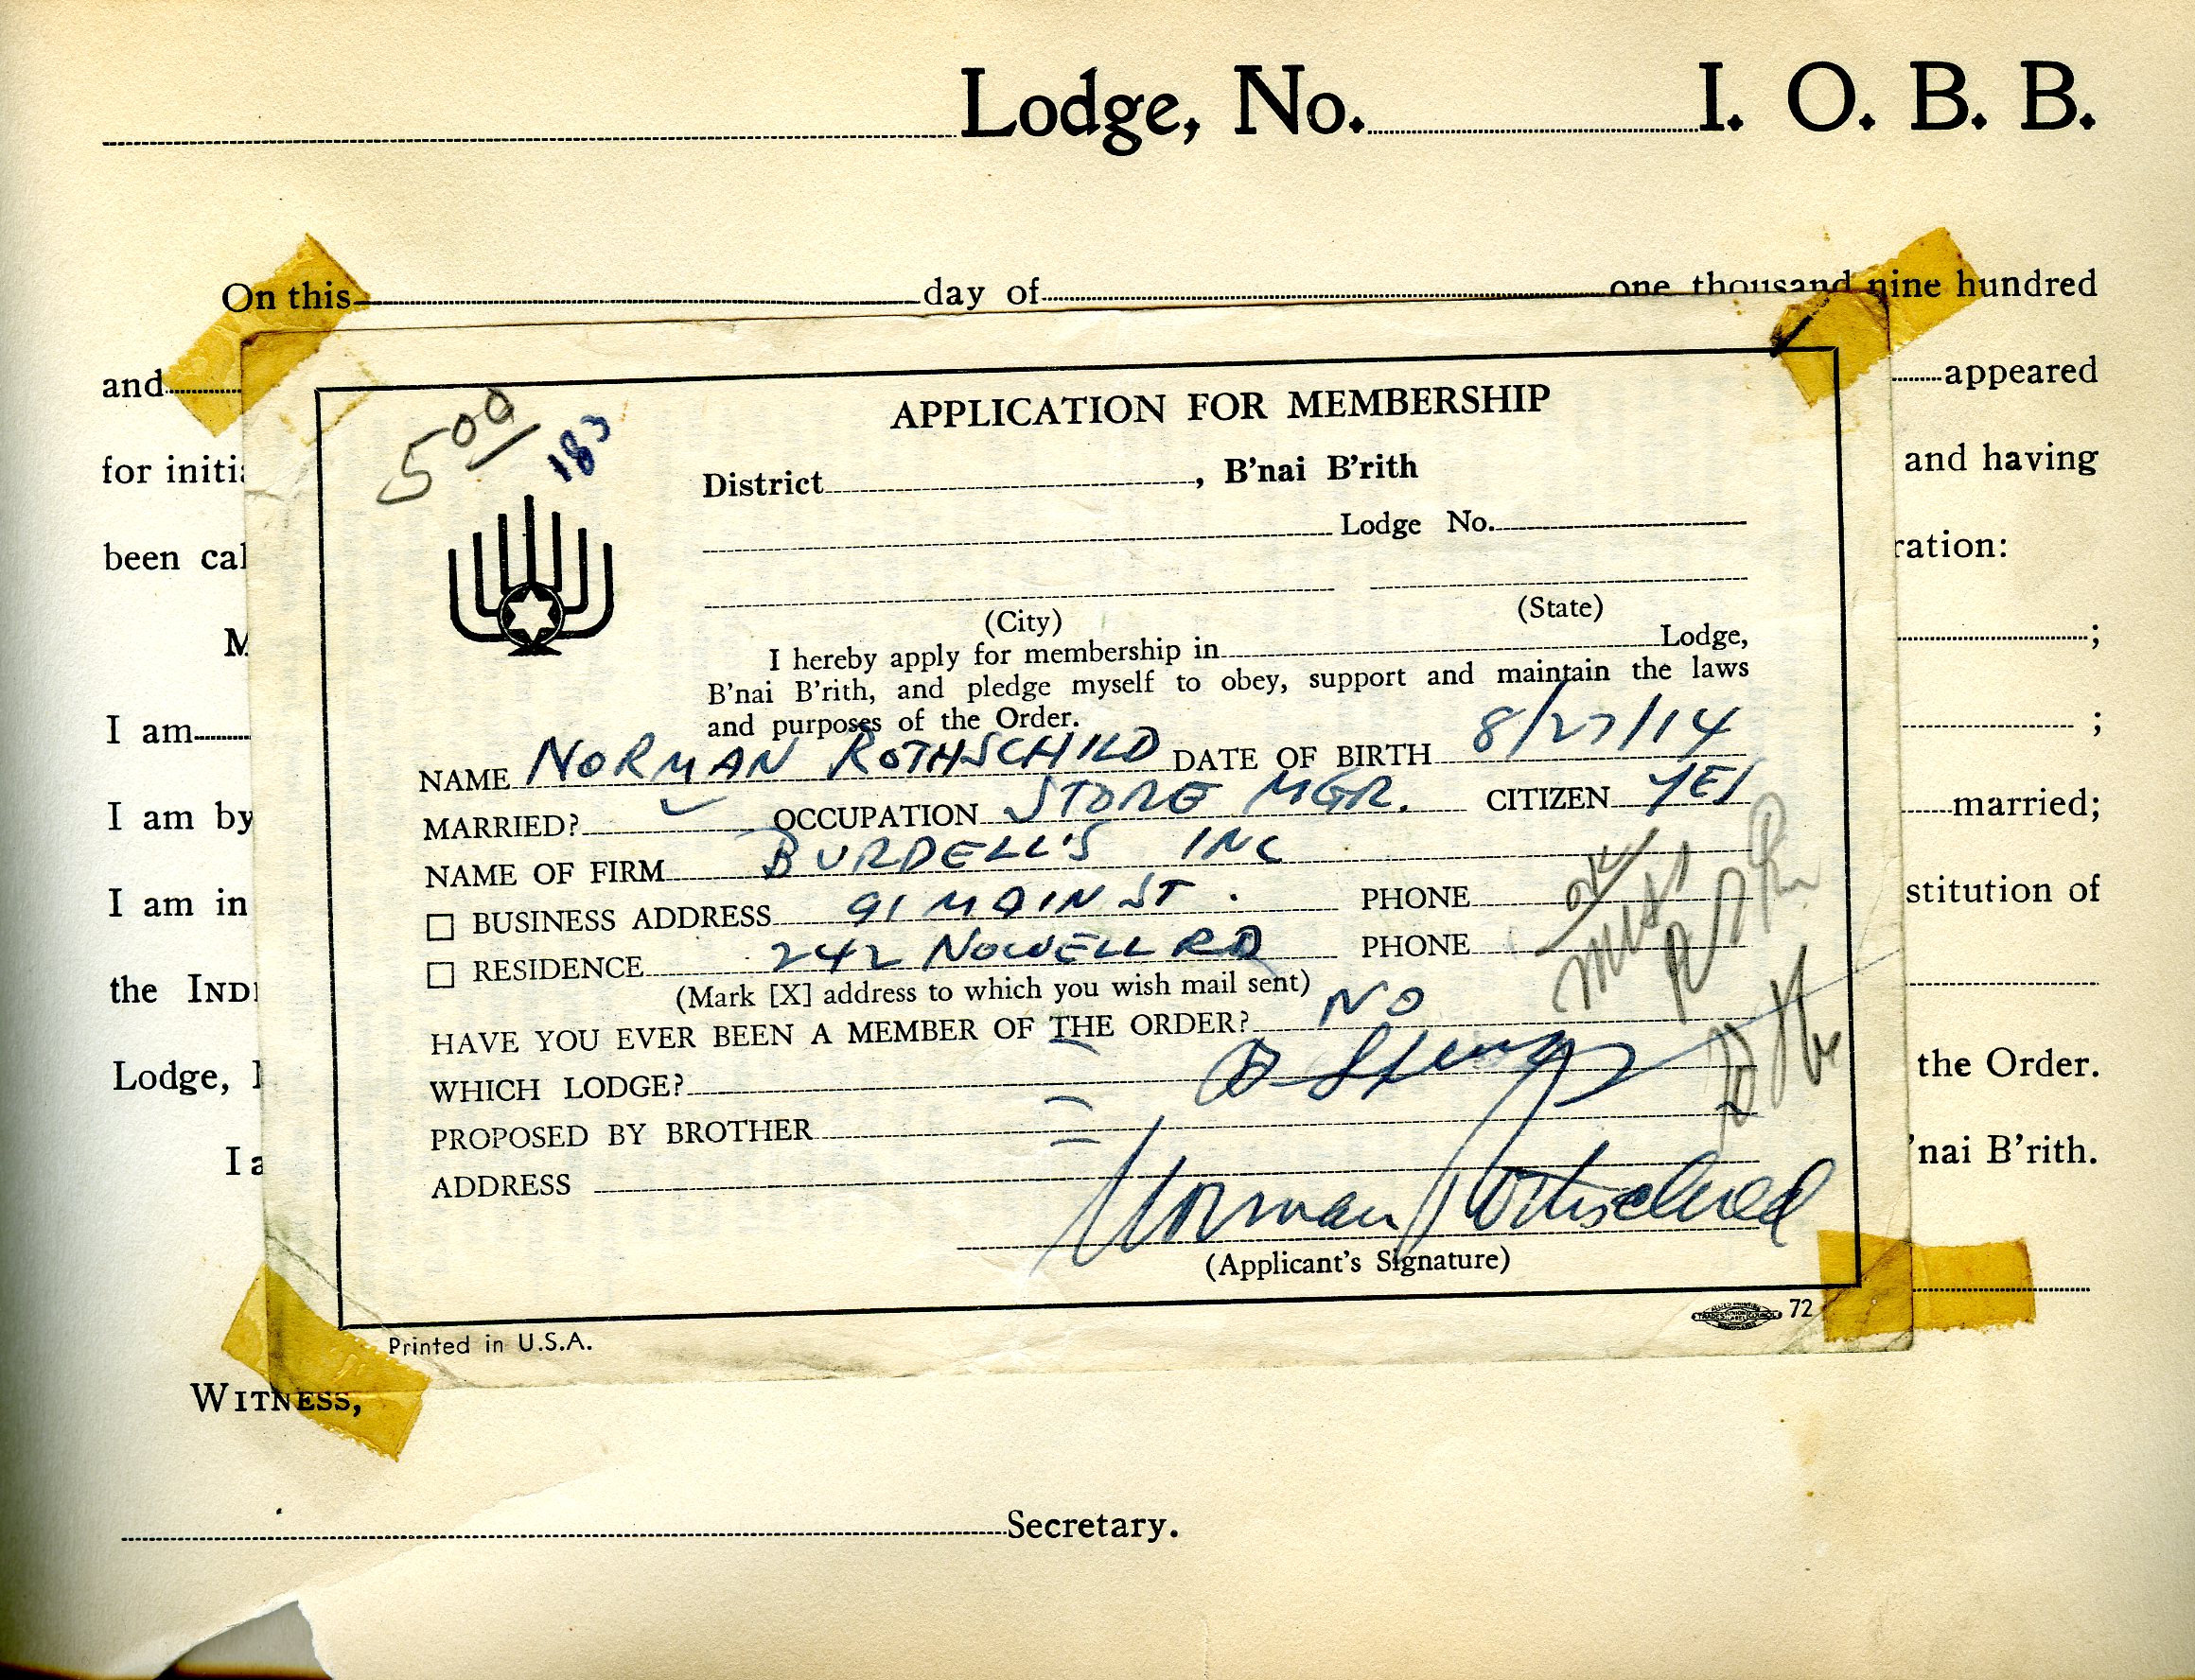 Lodge, No. I. O. B. B.
On this day of one thousand nine hundred
and appeared
for initi and having
been cal ration:
M ;
I am ;
I am by married;
I am in stitution of
the IND
Lodge, the Order.
I a 'nai B'rith.
5 00
183
APPLICATION FOR MEMBERSHIP
District , B'nai B'rith
Lodge No.
(City) (State)
I hereby apply for membership in Lodge,
B'nai B'rith, and pledge myself to obey, support and maintain the laws
and purposes of the Order.
NAME NORMAN ROTHSCHILD DATE OF BIRTH 8/27/14
MARRIED? ✓ OCCUPATION STORE MGR. CITIZEN YES
NAME OF FIRM BURDELL'S INC
☐ BUSINESS ADDRESS 91 MAIN ST. PHONE
☐ RESIDENCE 242 NOWELL RD PHONE
OK
(Mark [X] address to which you wish mail sent)
HAVE YOU EVER BEEN A MEMBER OF THE ORDER? NO
WHICH LODGE?
PROPOSED BY BROTHER
ADDRESS
Norman Rothschild
(Applicant's Signature)
72
Printed in U.S.A.
WITNESS,
Secretary.